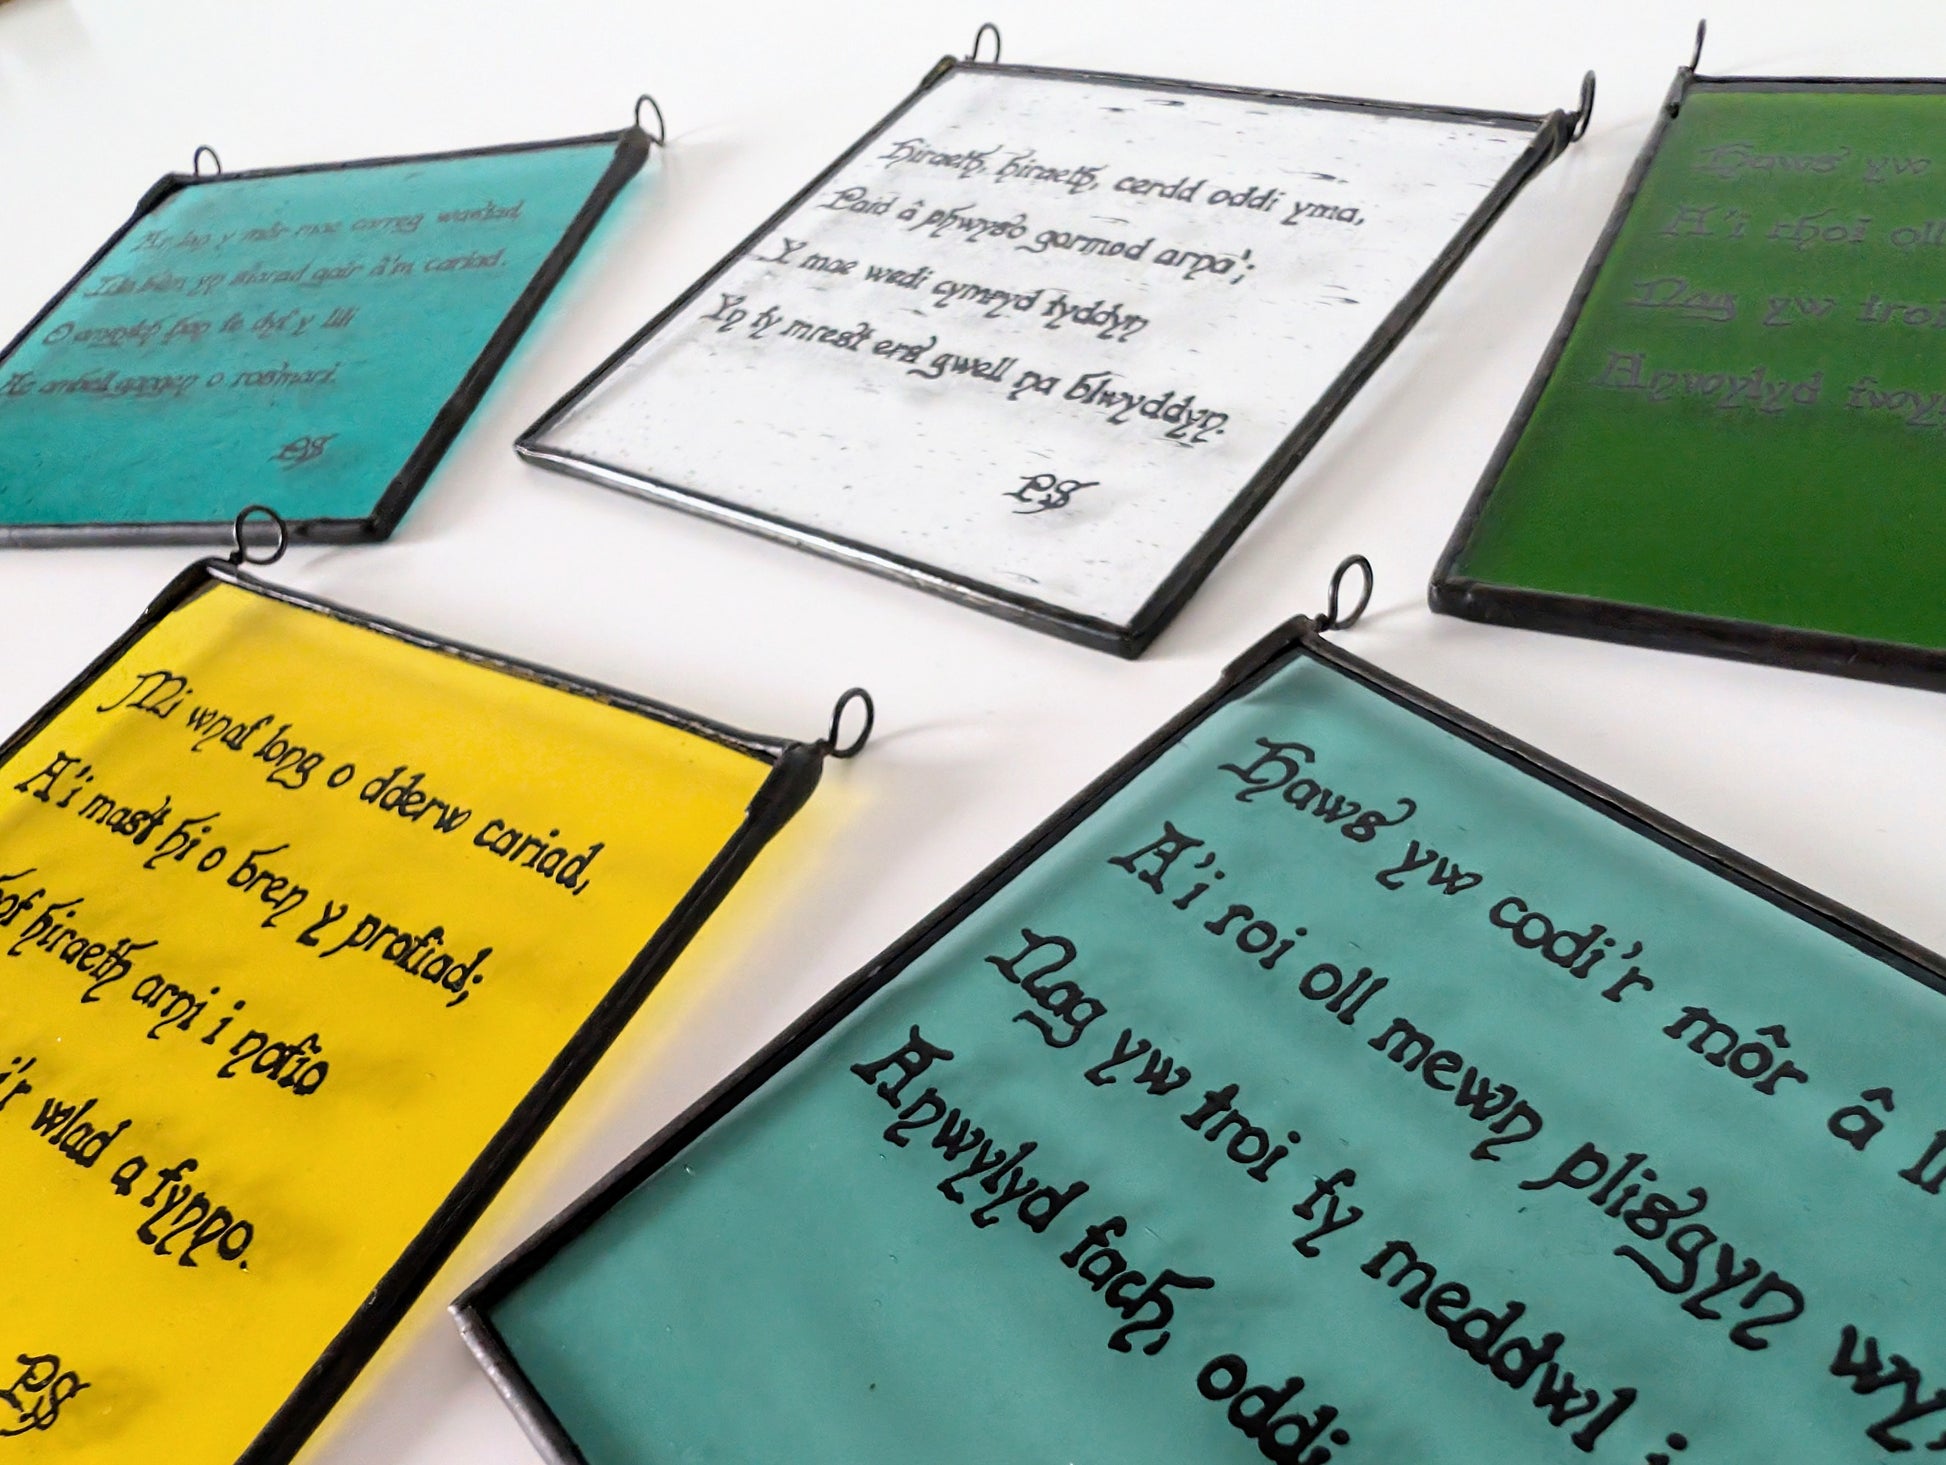 Ar lan y môr mae carreg wastad,
Lle bûm yn siarad gair â'm cariad.
O amgylch hon fe dyf y lili
Ac ambell gangen o rosmari.
PS
Hiraeth, hiraeth, cerdd oddi yma,
Paid â phwyso gormod arna';
Y mae wedi cymryd tyddyn
Yn fy mrest ers gwell na blwyddyn.
PS
Haws yw
A'i rhoi oll
Nag yw troi
Anwylyd fwyn
Mi wnaf long o dderw cariad,
A'i mast hi o bren y profiad;
hiraeth arni i nofio
i'r wlad a fynno.
PS
Haws yw codi'r môr â
A'i roi oll mewn plisgyn
Nag yw troi fy meddwl
Anwylyd fach, oddi